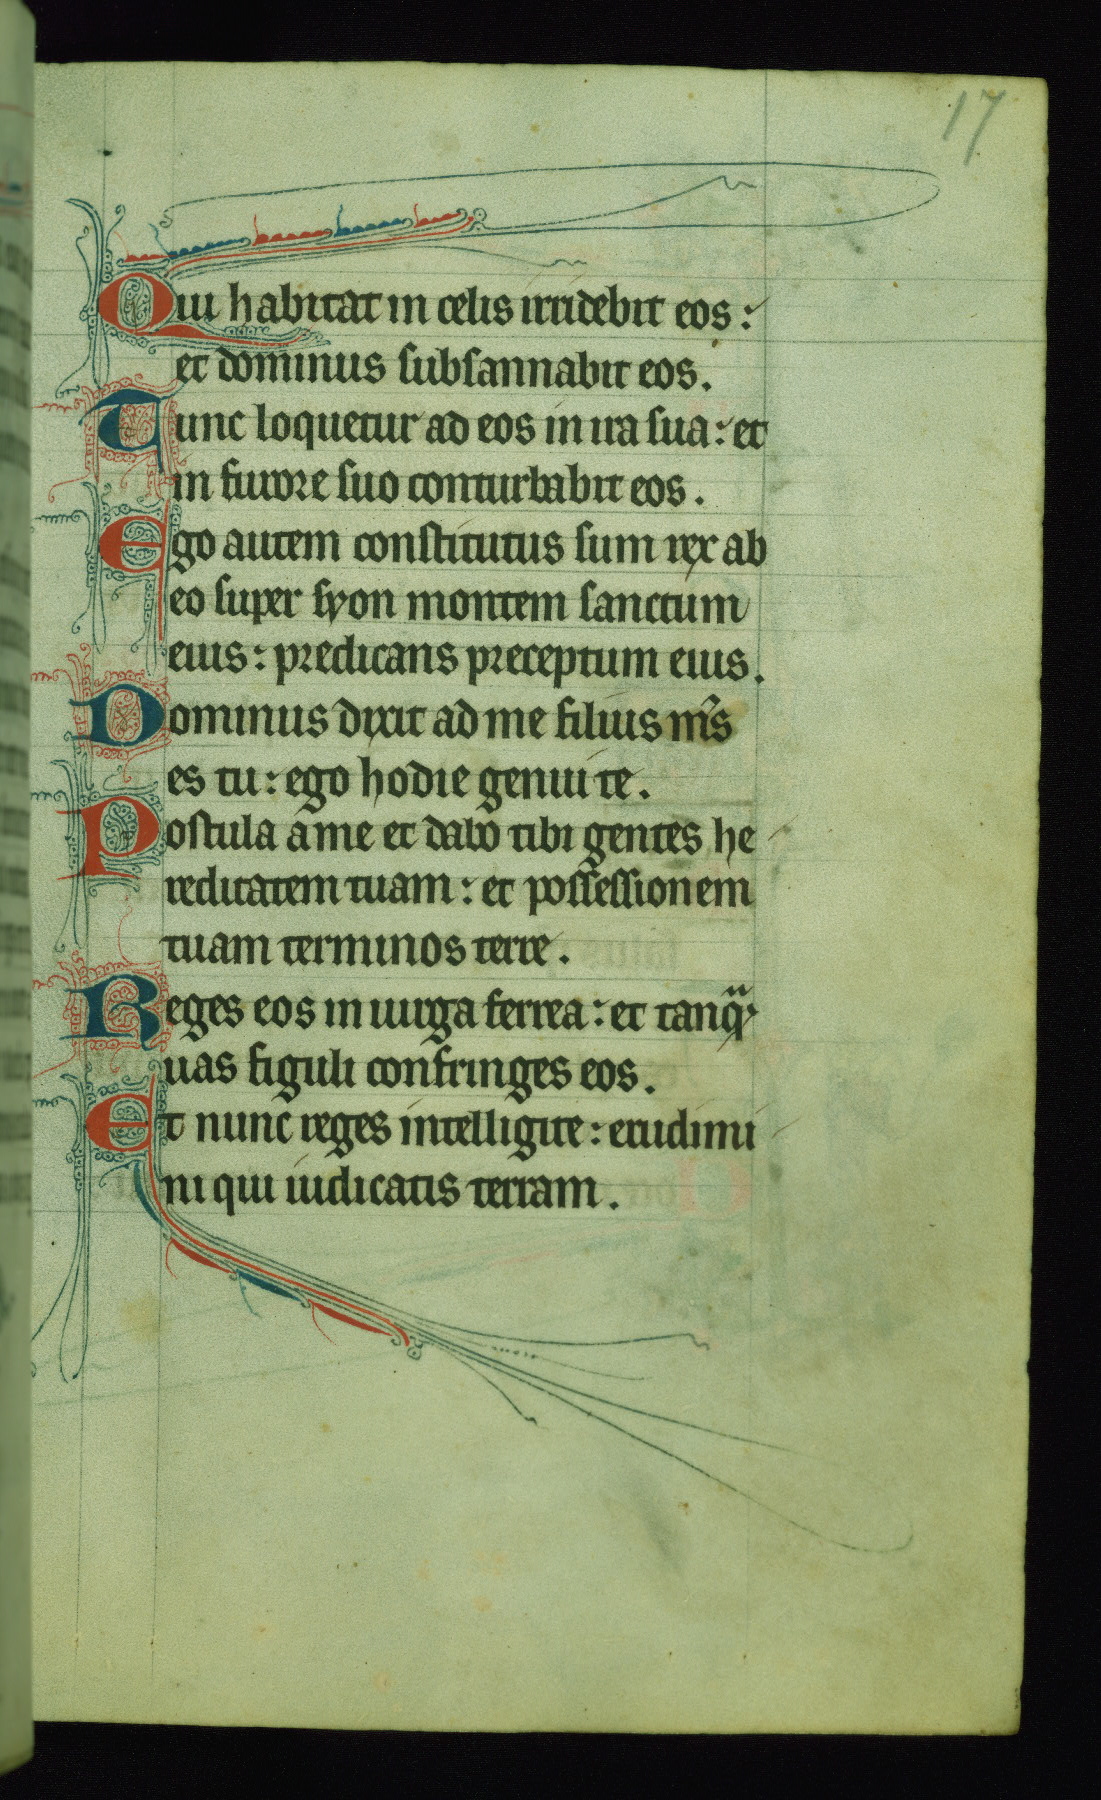 17
Qui habitat in celis irridebit eos:
et dominus subsannabit eos.
Tunc loquetur ad eos in ira sua: et
in furore suo conturbabit eos.
Ego autem constitutus sum rex ab
eo super syon montem sanctum
eius: predicans preceptum eius.
Dominus dixit ad me filius m̄s
es tu: ego hodie genui te.
Postula a me et dabo tibi gentes he
reditatem tuam: et possessionem
tuam terminos terre.
Reges eos in uirga ferrea: et tanq̃
uas figuli confringes eos.
Et nunc reges intelligite: erudimi
ni qui iudicatis terram.